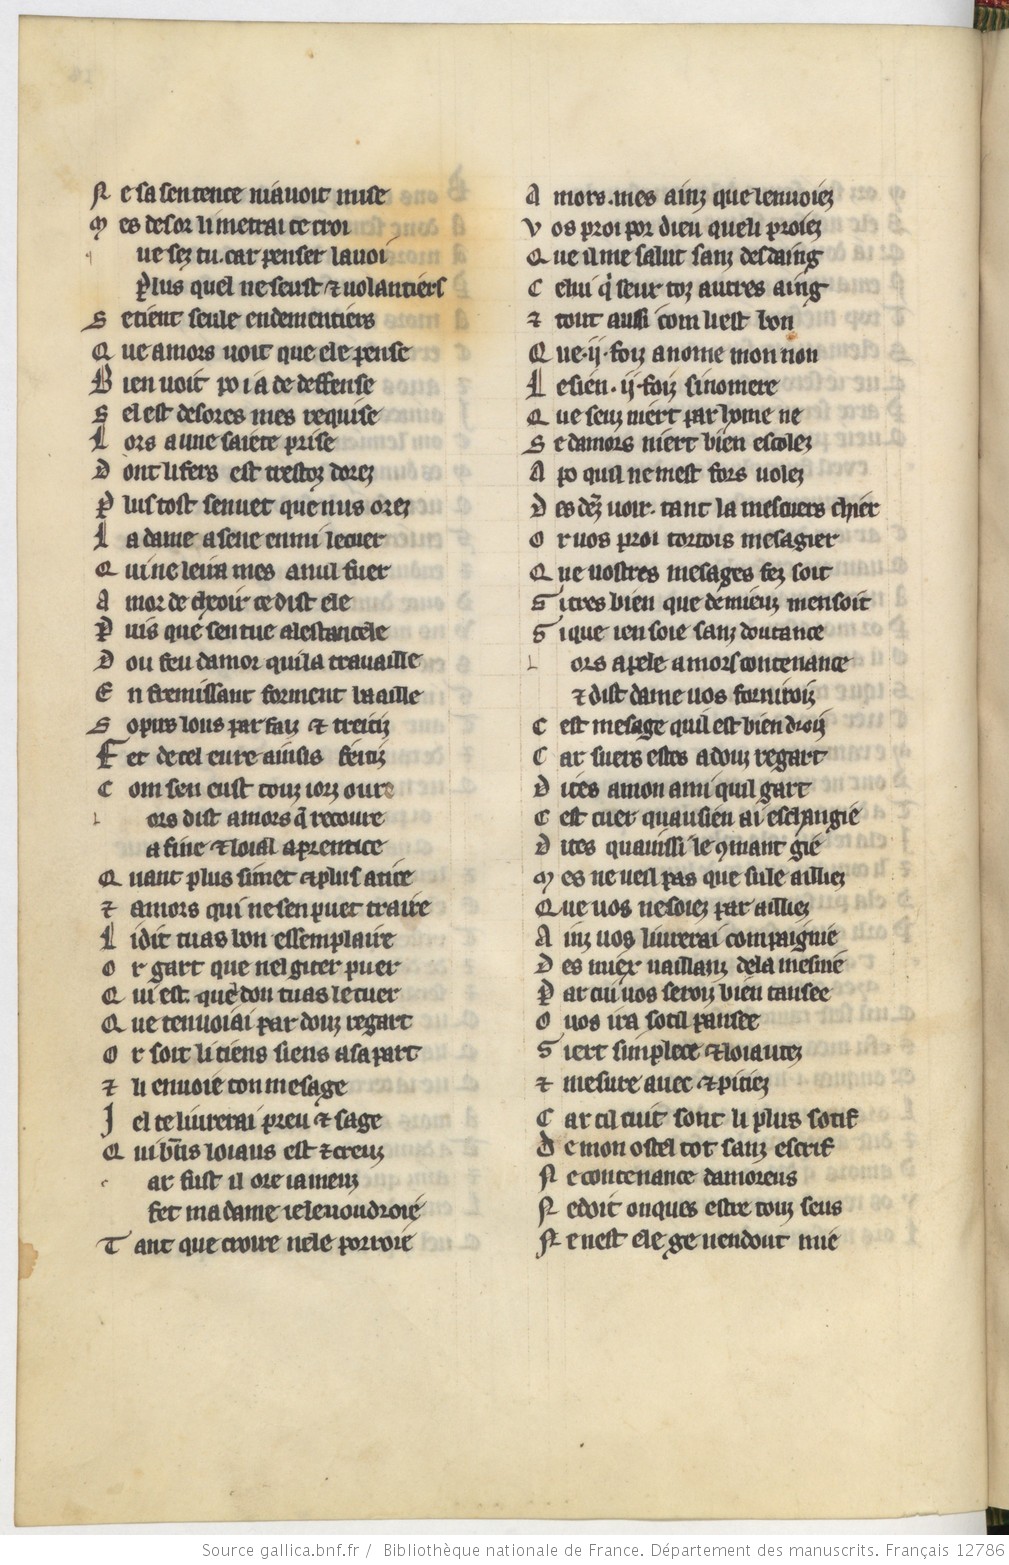 N e sa sentence ni auoit mise
M es desor li metrai ce croi
ue sez tu . car penser la uoi
P lus quel ne seust & uolantiers
S e tient seule endementiers
Q ue amors uoit que ele pense
B ien uoit po i a de deffense
S el est desores mes requise
L ors a une saiete prise
D ont li fers est trestoz dorez
P lus tost senuet que nus orez
L a dame a seue enmi le cuer
Q ui ne leira mes a nul fuer
A mor de cheoir ce dist ele
P uis que sen tue alestancele
D ou feu damor qui la trauaille
E n fremissant forment baaille
S opirs lons parfaiz & treitiz
F et de cel eure ainsis feitiz
C om sen eust touz iorz oure
l ors dist amors q̃ recoure
a fine & loial aprentice
Q uant plus simet & plus atice
& amors qui ne sen puet traire
L i dit tu as bon essemplaire
O r gart que nel giter puer
Q ui est . que don tu as le cuer
Q ue tenuoiai par douz regart
O r soit li tiens siens a sa part
& li enuoie ton mesage
J el te liurerai preu & sage
Q ui bñs loiaus est & creuz
c ar fust il ore ia meuz
fet ma dame ie le uoudroie
T ant que croire nele porroie
A mors . mes ainz que lenuoiez
V os proi por dieu que li proiez
Q ue il me salut sanz desdaing
C elui q̃ seur toz autres aing
& tout aussi com li est bon
Q ue .ij. foiz a nome mon non
L e sien .ij. foiz si nomere
Q ue seuz niert par home ne
S e damors niert bien escolez
A po quil ne mest fors uolez
D es dẽz uoir . tant la mescuers chier
O r uos proi cortois mesagier
Q ue uostres mesages fez soit
S itres bien que de mieuz men soit
S i que ien soie sanz doutance
l ors apele amors contenance
& dist dame uos forniroiz
C est mesage quil est bien droiz
C ar suers estes a douz regart
D ites a mon ami quil gart
C est cuer quau sien ai eschangie
D ites quainssi le 9mant gie
M es ne ueil pas que sule ailliez
Q ue uos ne soiez par ailliez
A inz uos liurerai compaignie
D es miex uaillanz de la mesnie
P ar cui uos seroiz bien tansee
O uos ira sotil pansee
S iert simplece & loiautez
& mesure auec & pitiez
C ar cil cuit sont li plus sotif
D e mon ostel tot sanz estrif
N e contenance damoreus
N e doit onques estre touz seus
N e nest ele ge uendout mie